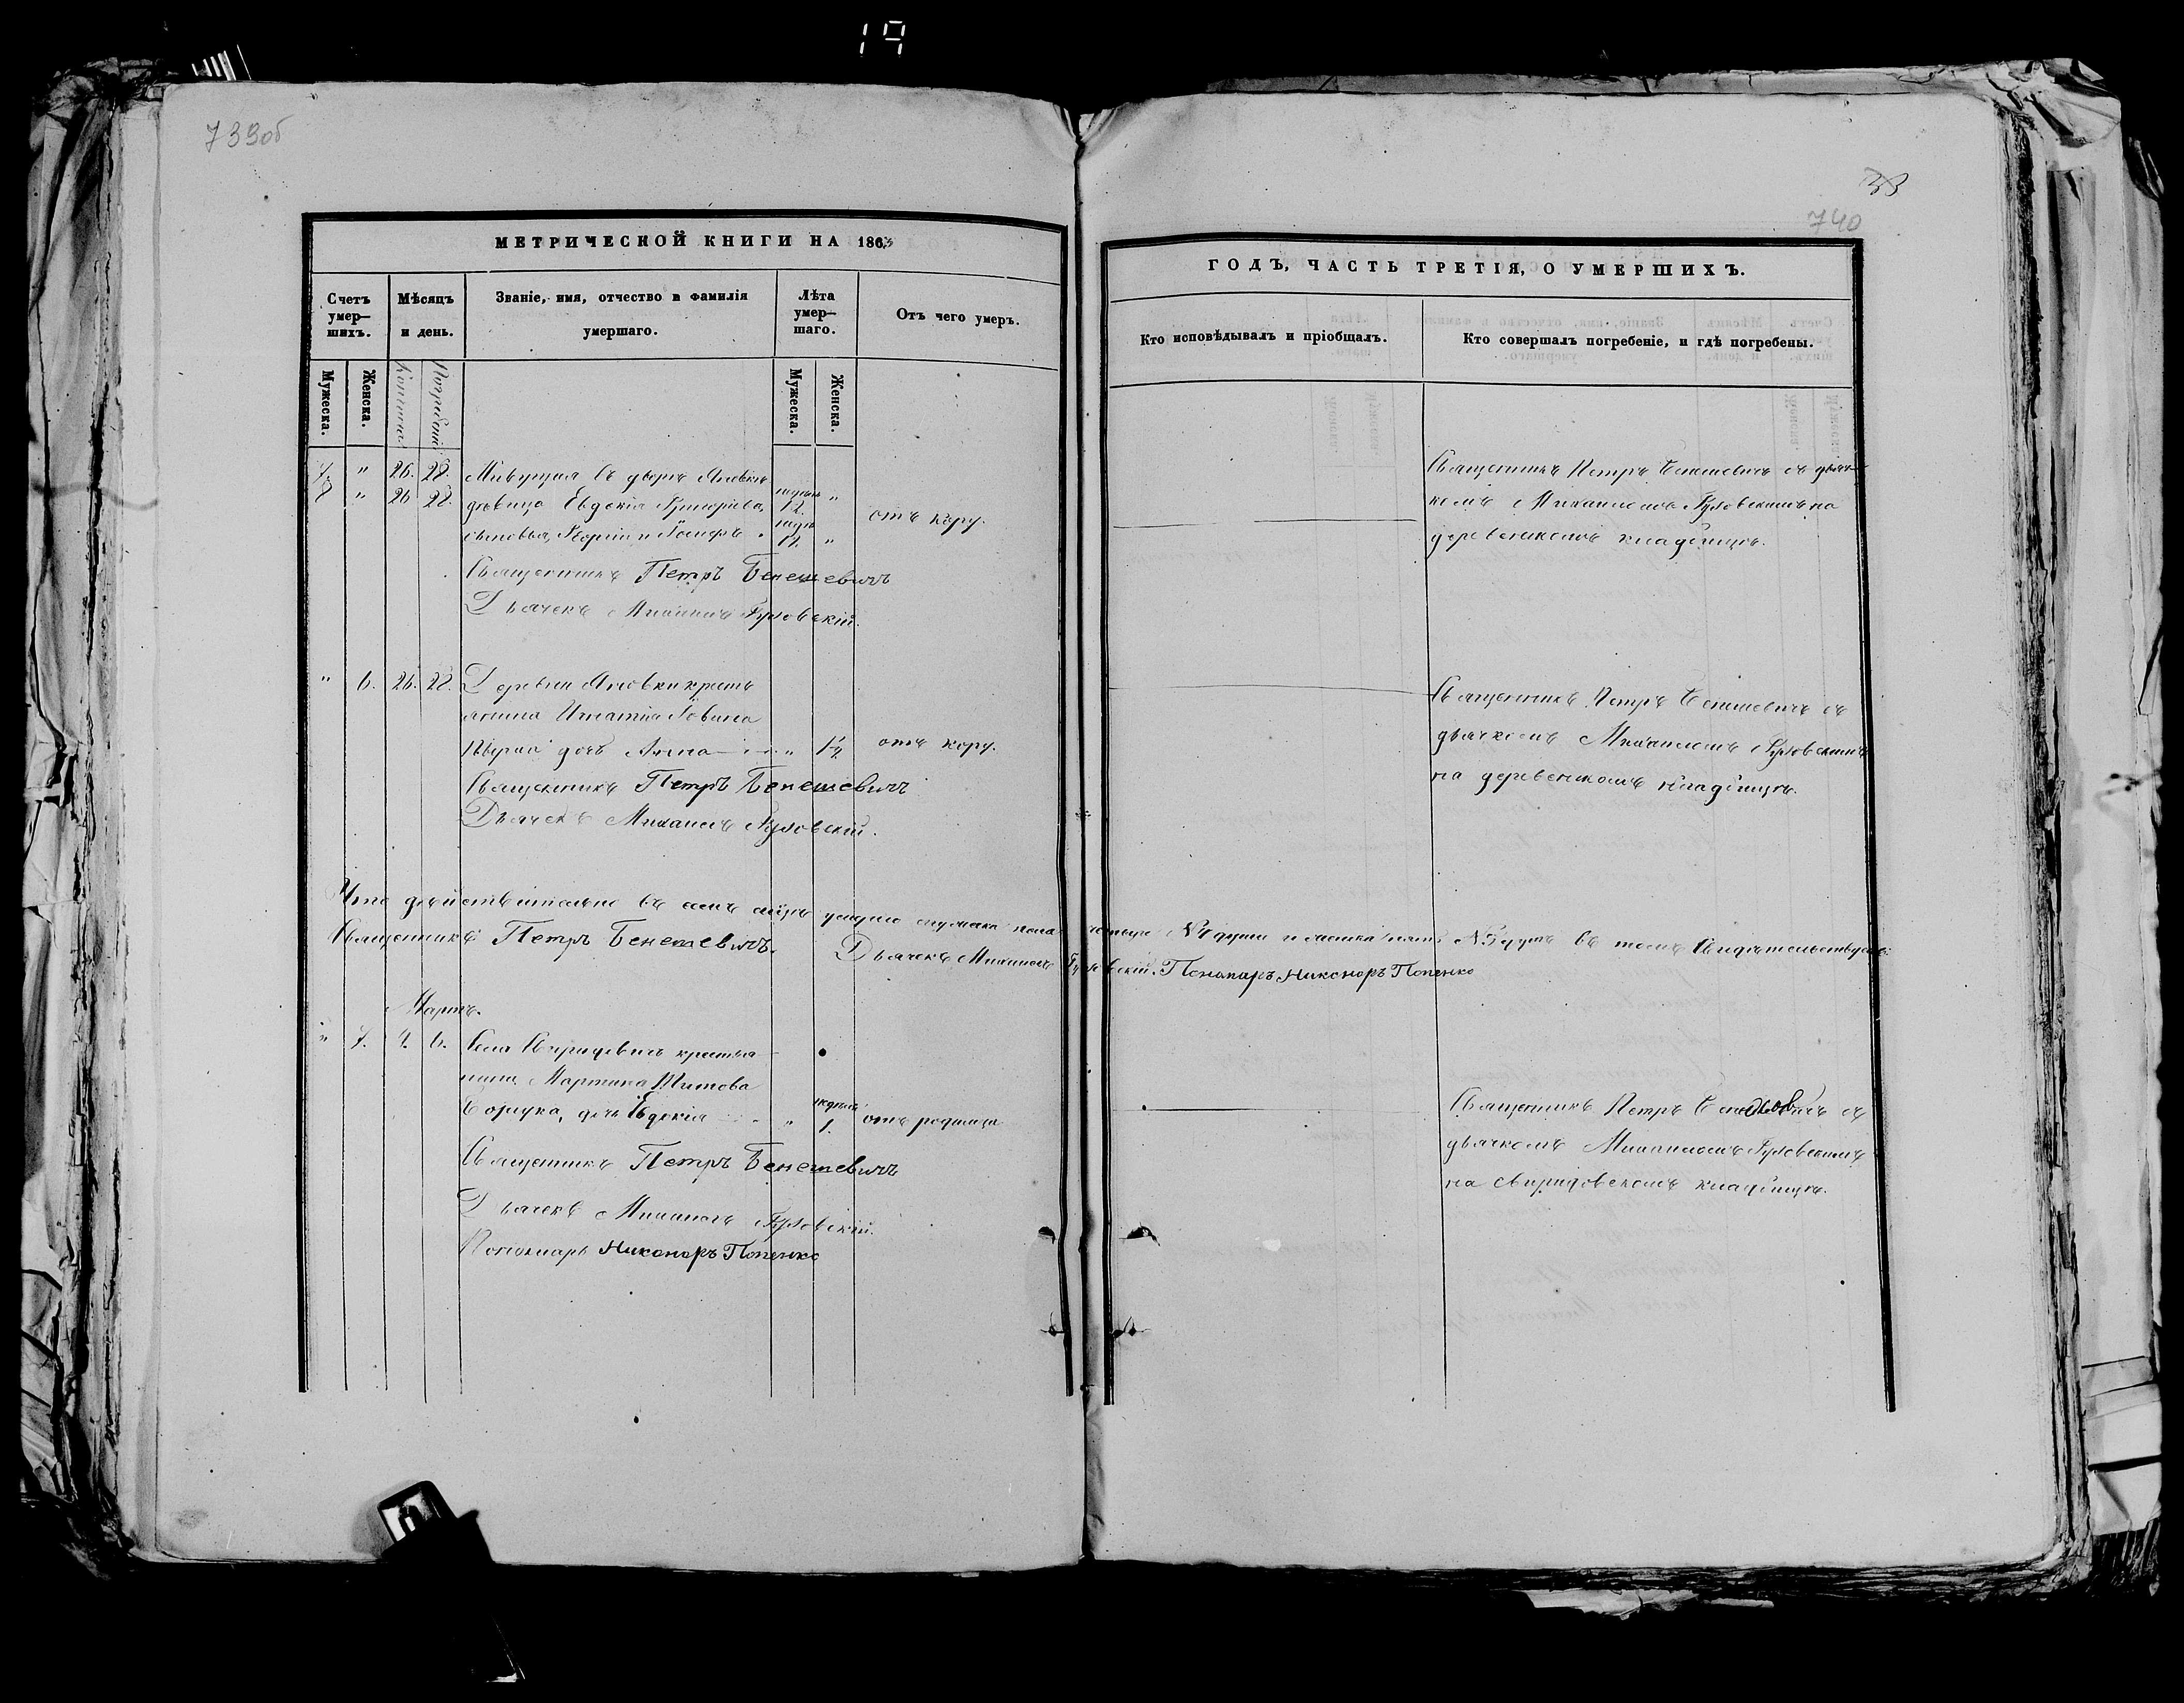 19
739об
МЕТРИЧЕСКОЙ КНИГИ НА 1863
Счетъ умер-шихъ.
Мѣсяцъ и день.
Званіе, имя, отчество и фамилія умершаго.
Лѣта умер-шаго.
Отъ чего умеръ.
Мужеска.
Женска.
Кончины
Погребенія
Мужеска.
Женска.
7. " 26. 28. Живущая въ дворѣ
8 " 26 28. дѣвица Евдокія Григоріева, 12. " отъ кору.
сыновья, Георгій и "
Священникъ Петръ Бенешевичъ
Дьячекъ Михаилъ Гуловскій.
" 6. 26. 28. Деревни Яновки кресть
янина Игнатія
дочь Анна " 1/4 отъ кору.
Священникъ Петръ Бенешевичъ
Дьячекъ Михаилъ Гуловскій.
Что дѣйствительно въ семъ умерло мужеска пола четыре № 4 души и женска пять № 5 душъ въ томъ свидѣтельствуемъ:
Священникъ Петръ Бенешевичъ. Дьячекъ Михаилъ Гуловскій. Пономарь Никоноръ Попенко
Мартъ.
" 7. 4. 6. Села крестья
нина Мартина Титова
дочь Евдокія " недѣль 1. отъ родимца
Священникъ Петръ Бенешевичъ
Дьячекъ Михаилъ Гуловскій.
Пономарь Никоноръ Попенко
33
740
ГОДЪ, ЧАСТЬ ТРЕТІЯ, О УМЕРШИХЪ.
Кто исповѣдывалъ и пріобщалъ.
Кто совершалъ погребеніе, и гдѣ погребены.
Священникъ Петръ Бенешевичъ съ дьяч-
комъ Михаиломъ Гуловскимъ на
деревенскомъ кладбищѣ.
Священникъ Петръ Бенешевичъ съ
дьячкомъ Михаиломъ Гуловскимъ
на деревенскомъ кладбищѣ.
Священникъ Петръ Бенешевичъ съ
дьячкомъ Михаиломъ Гуловскимъ
на свиридовскомъ кладбищѣ.